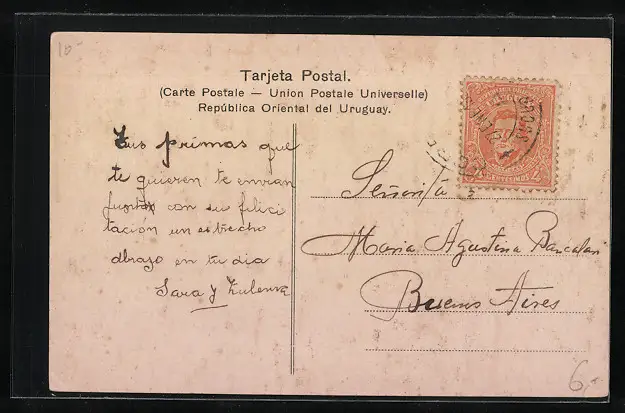 10-
Tarjeta Postal.
(Carte Postale — Union Postale Universelle)
República Oriental del Uruguay.
Tus primas que
te quieren te envian
juntos con su felici
tación un estrecho
abrazo en tu dia
Sara y Zulema
Señorita
Maria Agustina Bancalari
Buenos Aires
6,-